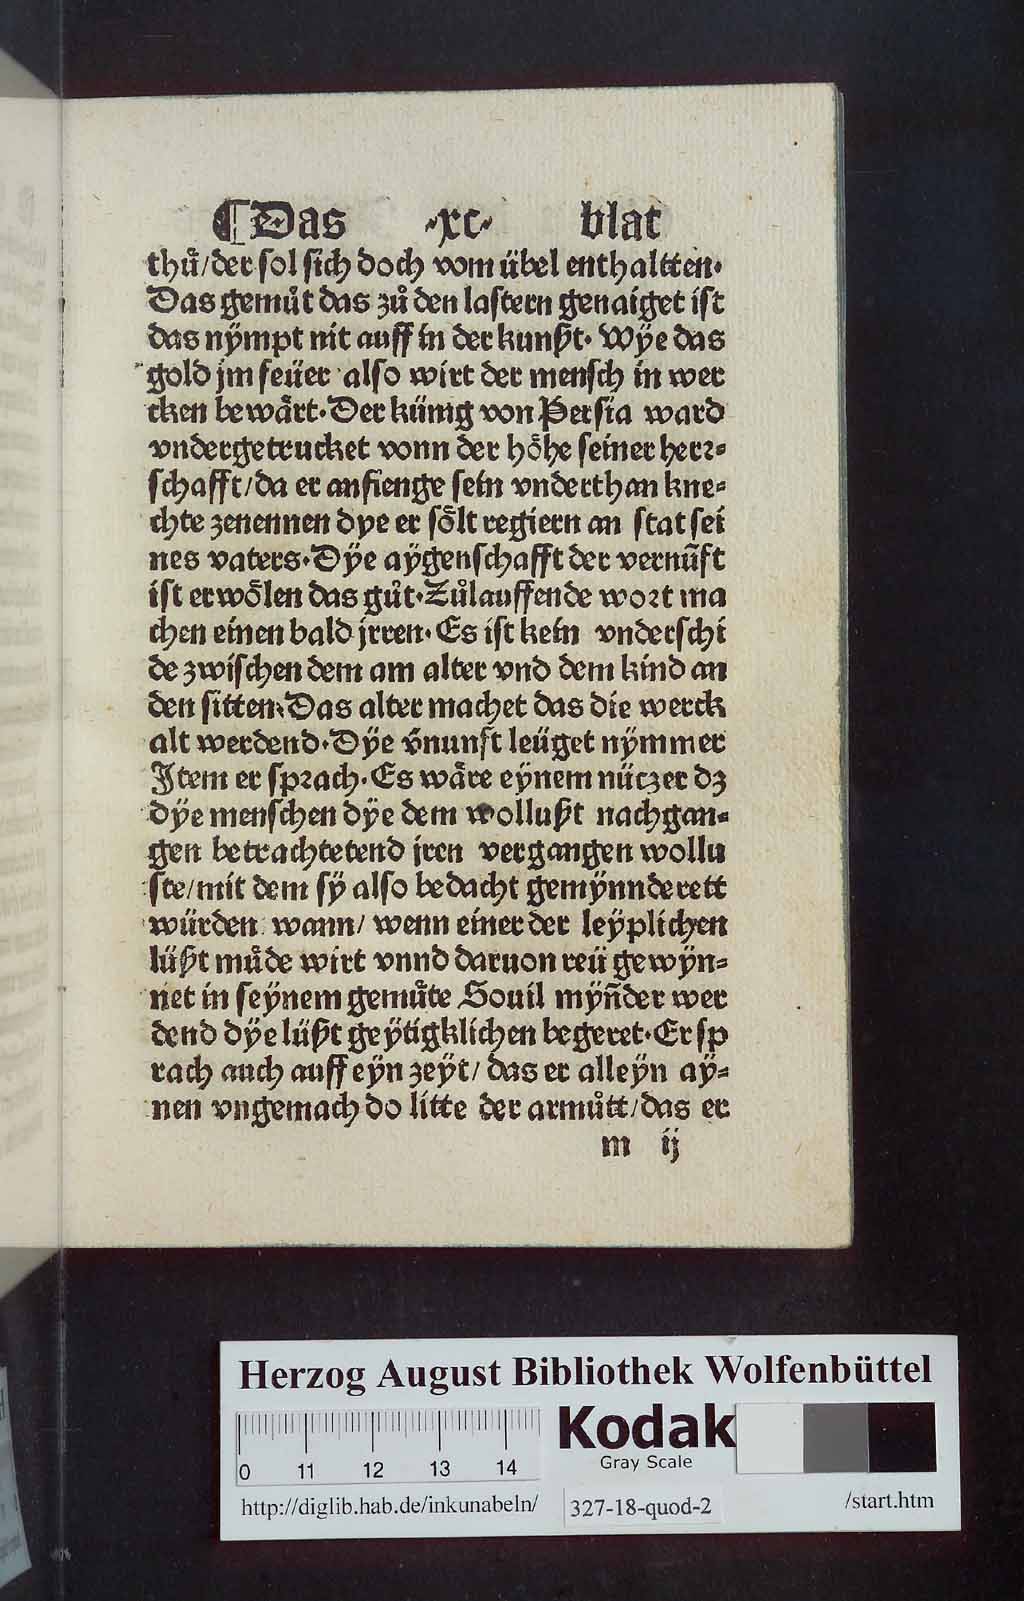 ¶Das ·xc· blat
thů/der sol sich doch vom übel enthaltten·
Das gemůt das zů den lastern genaiget ist
das nÿmpt nit auff in der kunßt· Wÿe das
gold jm feüer also wirt der mensch in wer
cken bewärt·Der künig von Persia ward
vndergetrucket vonn der höhe seiner herꝛ⸗
schafft/da er anfienge sein vnderthan kne⸗
chte zenennen dye er sölt regiern an stat sei
nes vaters·Dÿe aÿgenschafft der vernũft
ist erwölen das gůt·Zůlauffende woꝛt ma
chen einen bald jrren·Es ist kein vnderschi
de zwischen dem am alter vnd dem kind an
den sitten·Das alter machet das die werck
alt werdend·Dÿe v̄nunft leüget nÿmmer
Item er spꝛach·Es wäre eÿnem nützer dz
dÿe menschen dÿe dem wollußt nachgan⸗
gen betrachtetend jren vergangen wollu
ste/mit dem sÿ also bedacht gemÿnnderett
würden. wann/ wenn einer der leÿplichen
lüßt můde wirt vnnd daruon reü gewÿn⸗
net in seÿnem gemůte Souil mÿñder wer
dend dÿe lüßt geÿtigklichen begeret·Er sp
rach auch auff eÿn zeÿt/ das er alleÿn aÿ⸗
nen vngemach do litte der armůtt/das er
m ij
Herzog August Bibliothek Wolfenbüttel
0 11 12 13 14
Kodak
Gray Scale
http://diglib.hab.de/inkunabeln/ 327-18-quod-2 /start.htm